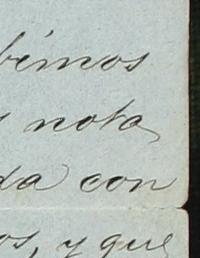 bimos
s nota
da con
os, y que